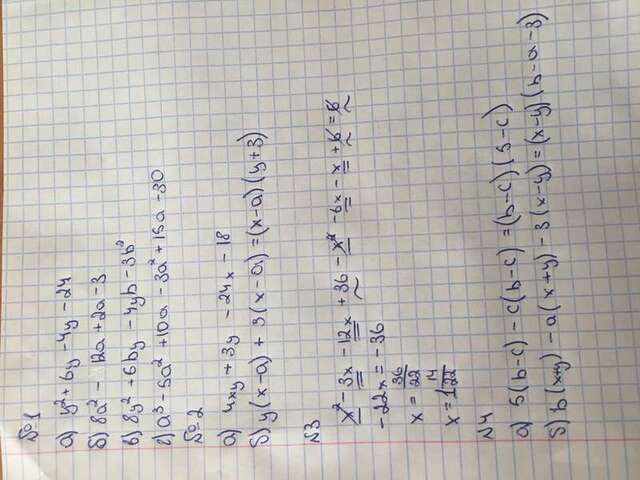 №1
а) y² + 6y - 4y - 24
б) 8a² - 12a + 2a - 3
в) 8y² + 6by - 4yb - 3b²
г) a³ - 5a² + 10a - 3a² + 15a - 30
№2
а) 4xy + 3y - 24x - 18
б) y(x-a) + 3(x-a) = (x-a)(y+3)
№3
x² - 3x - 12x + 36 - x² - 6x - x + 6 = 6
-22x = -36
x = 36/22
x = 1 14/22
№4
а) 5(b-c) - c(b-c) = (b-c)(5-c)
б) b(x+y) - a(x+y) - 3(x-y) = (x-y)(b-a-3)